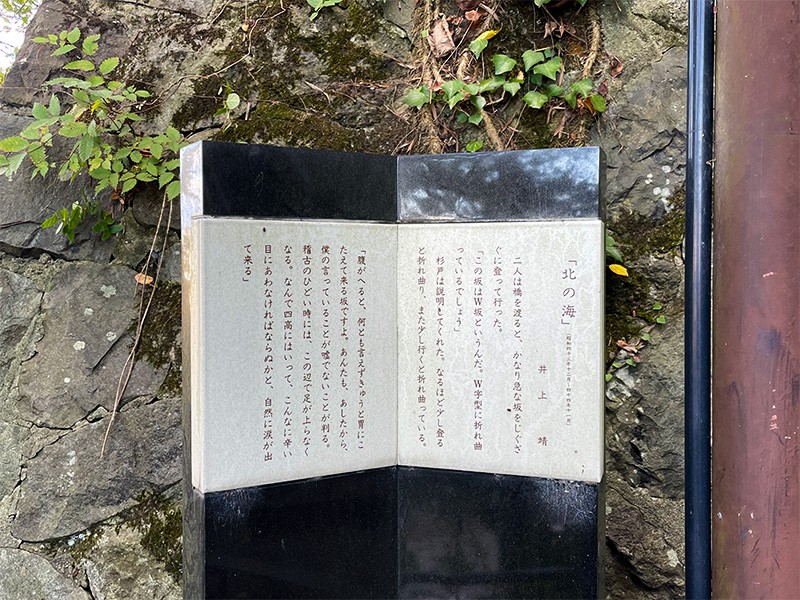 「北の海」
(昭和四十三年十二月~四十四年十一月)
井上 靖
二人は橋を渡ると、かなり急な坂をじぐざ
ぐに登って行った。
「この坂はW坂というんだ。W字型に折れ曲
っているでしょう」
杉戸は説明してくれた。なるほど少し登る
と折れ曲り、また少し行くと折れ曲っている。
「腹がへると、何とも言えずきゅうと胃にこ
たえて来る坂ですよ。あんたも、あしたから、
僕の言っていることが嘘でないことが判る。
稽古のひどい時には、この辺で足が上らなく
なる。なんで四高にはいって、こんなに辛い
目にあわなければならぬかと、自然に涙が出
て来る」